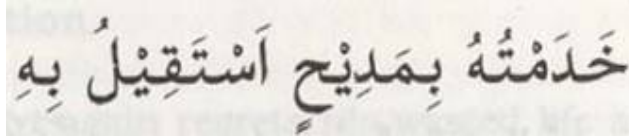 خَدَمْتُهُ بِمَدِيْحٍ اَسْتَقِيْلُ بِهِ